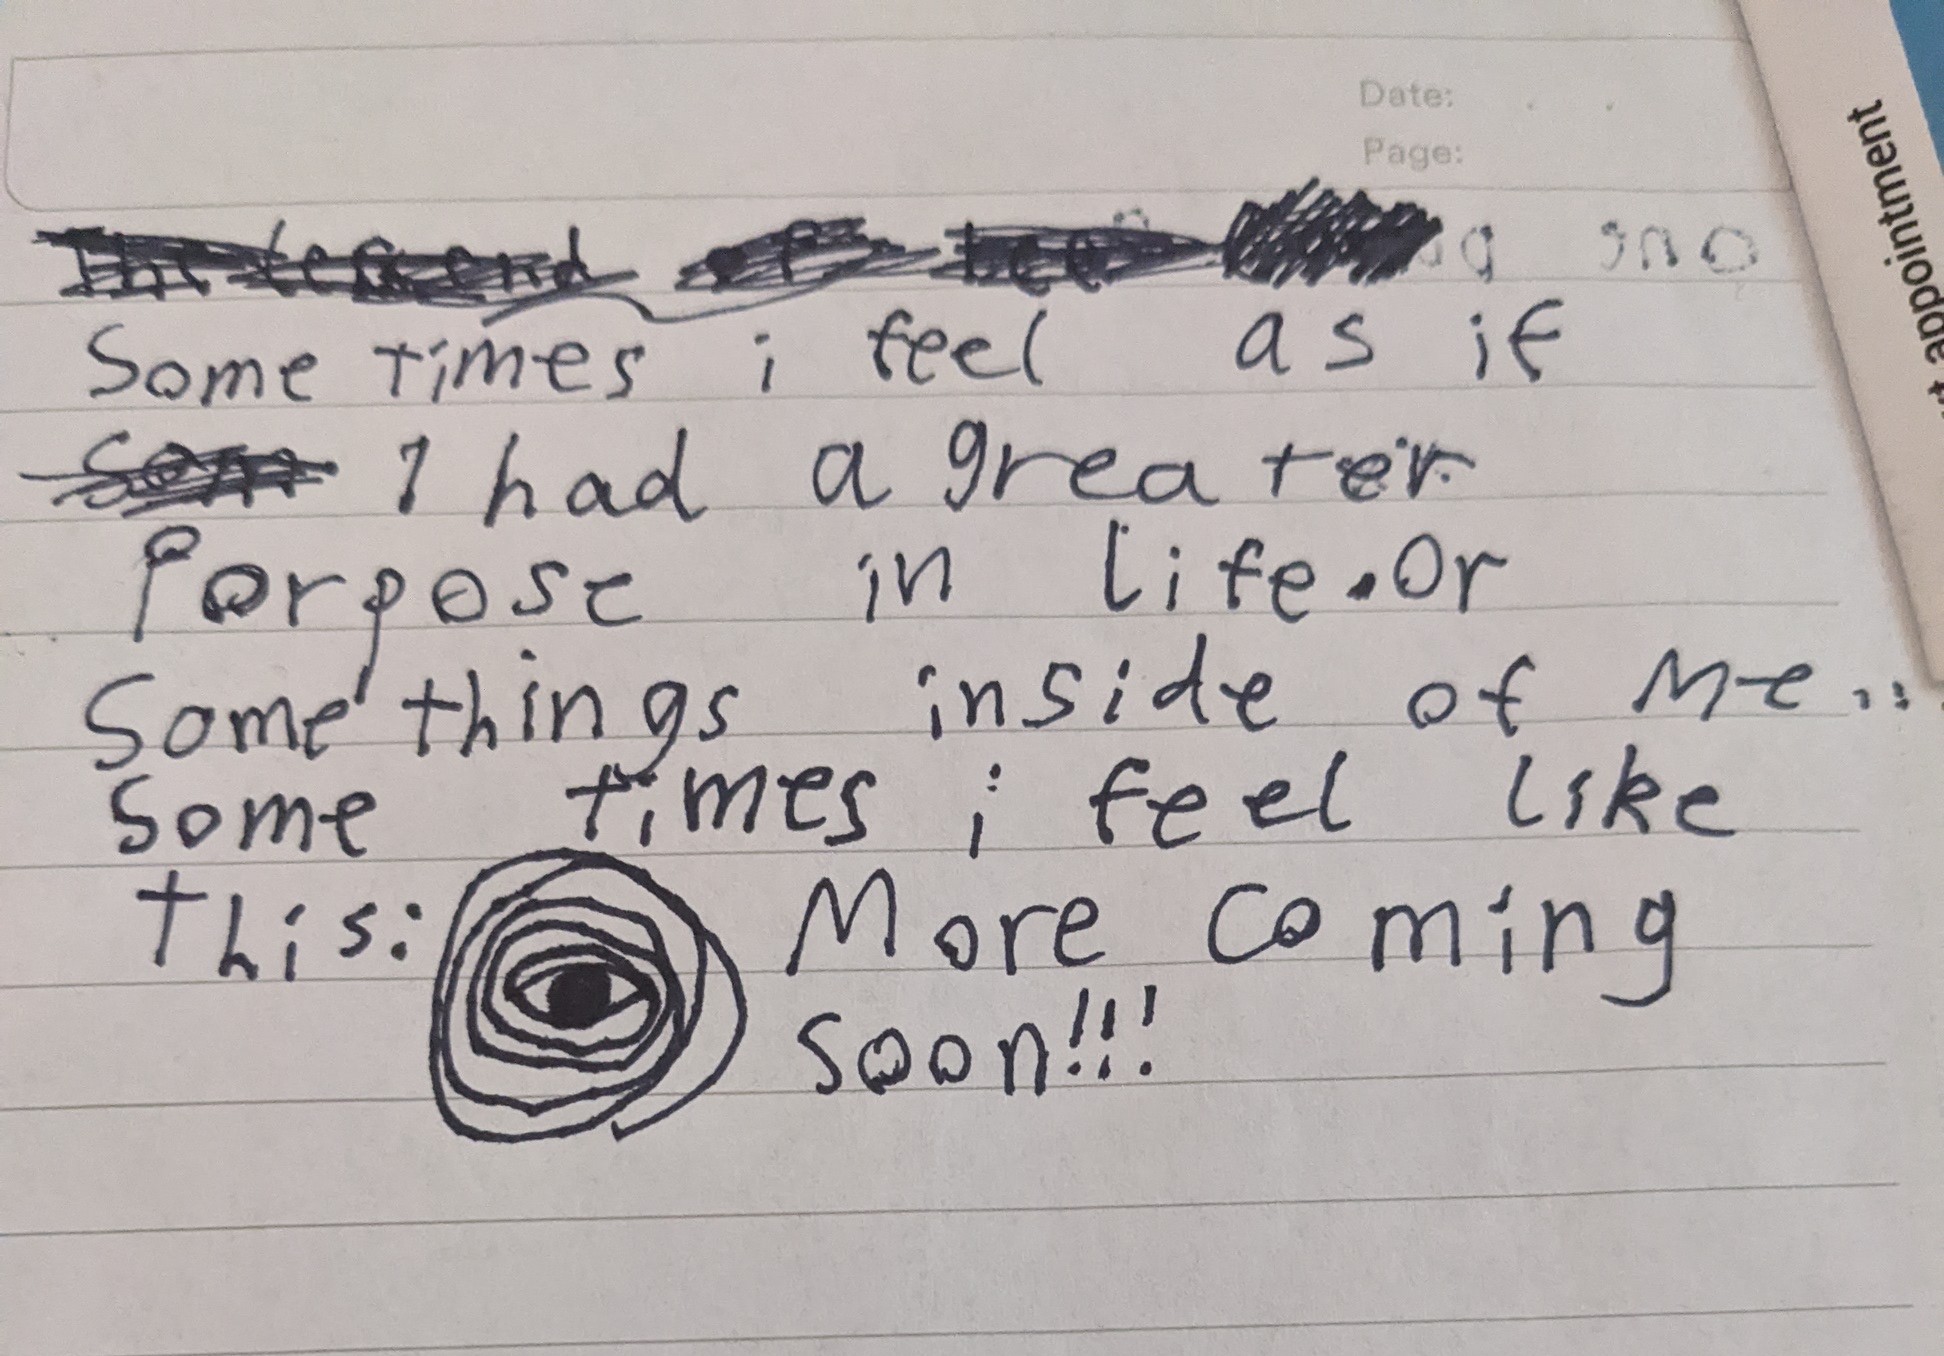 Date:
Page:
Some times i feel as if
I had a greater
Porpose in life. Or
Some things inside of me...
Some times i feel like
this: More coming
soon!!!
appointment